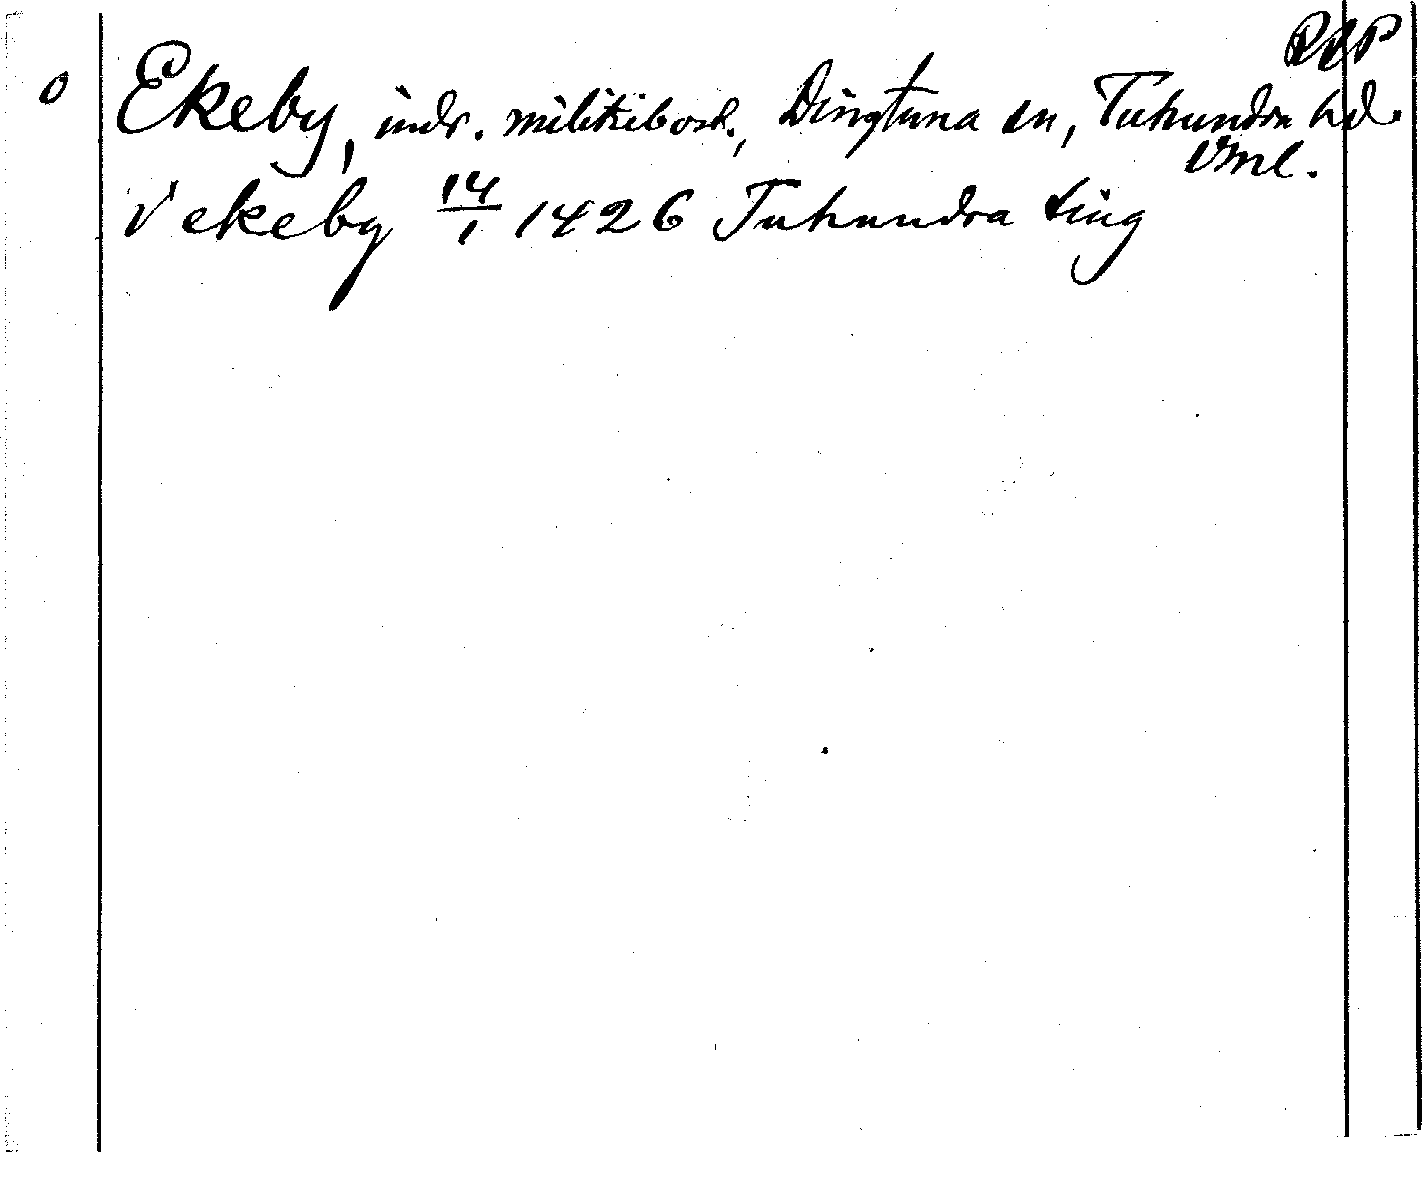 RAP
o Ekeby, indr. militiebost., Dingtuna sn, Tuhundra hd.
Vml.
V ekeby 14/1 1426 Tuhundra ting